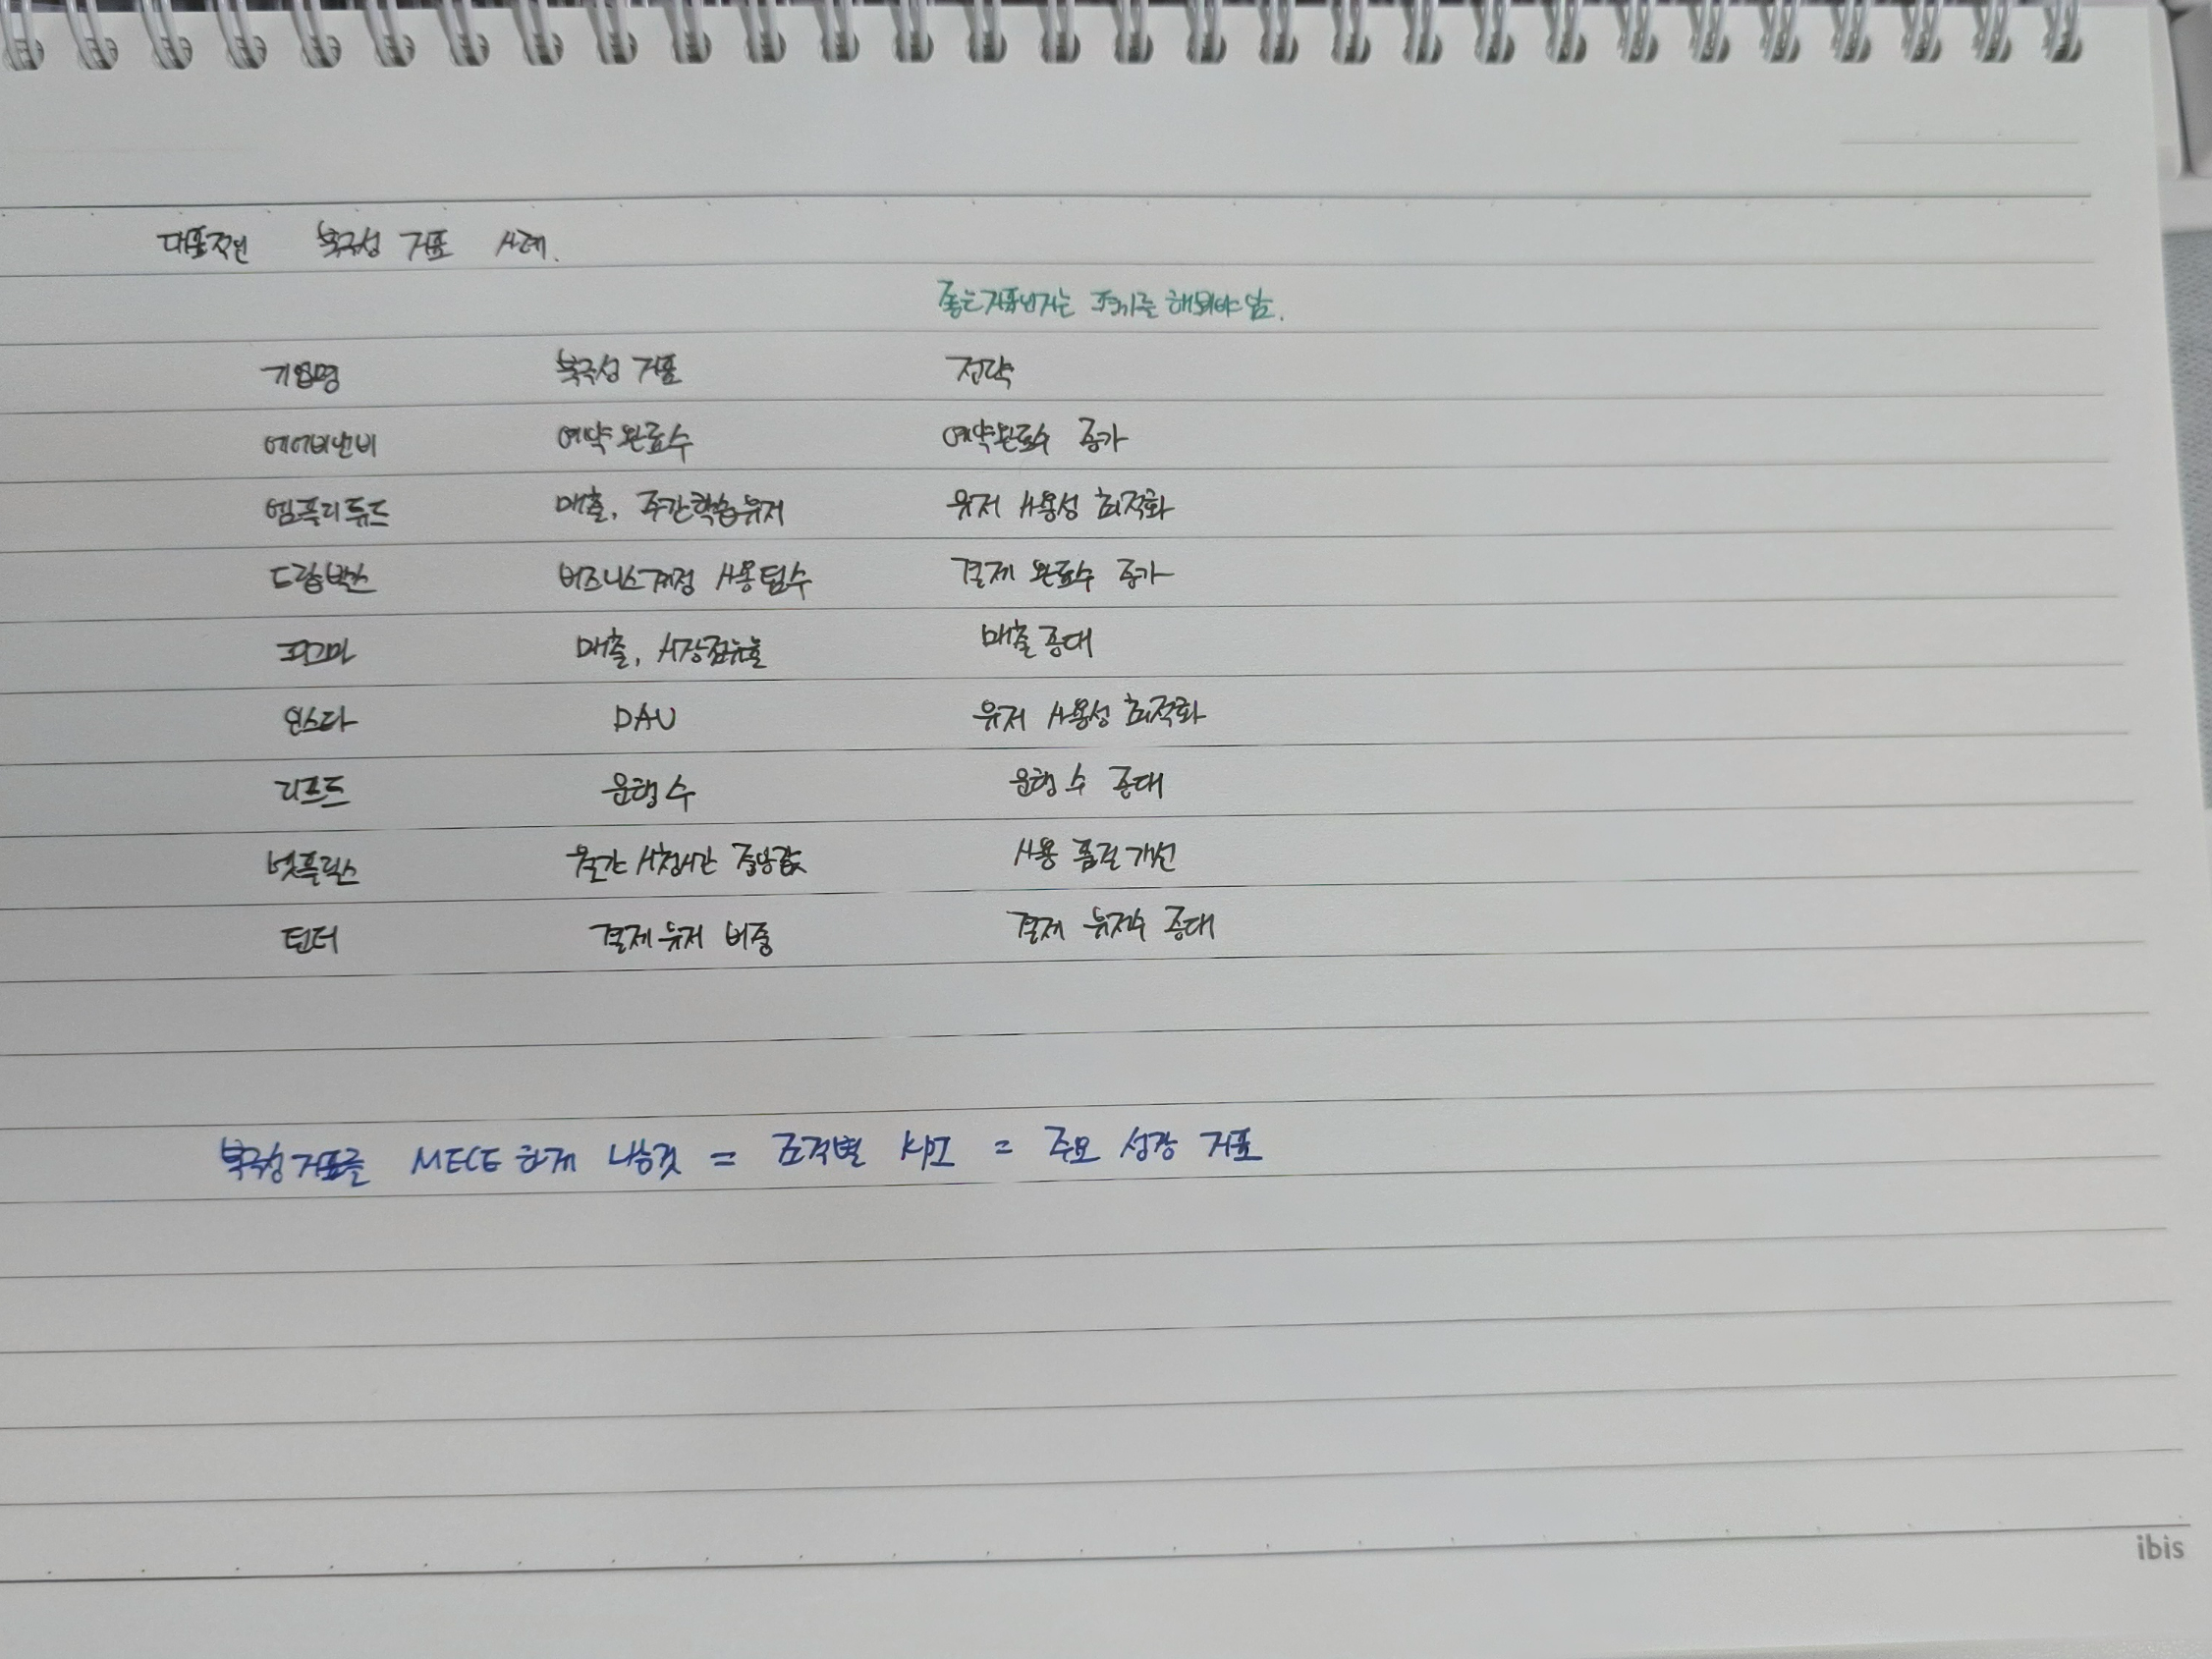 대표적인 북극성 지표 사례.
좋은지표인지는 평가를 해봐야 앎.
기업명 북극성 지표 전략
에어비앤비 예약완료수 예약완료수 증가
엠플리튜드 매출, 주간학습유저 유저 사용성 최적화
드랍박스 비즈니스계정 사용팀수 결제 완료수 증가
피그마 매출, 시장점유율 매출증대
인스타 DAU 유저 사용성 최적화
리프트 운행수 운행 수 증대
넷플릭스 월간 시청시간 중앙값 사용 품질개선
틴더 결제유저 비중 결제 유저수 증대
북극성지표를 MECE 하게 나눈것 = 조직별 KPI = 주요 성장 지표
ibis